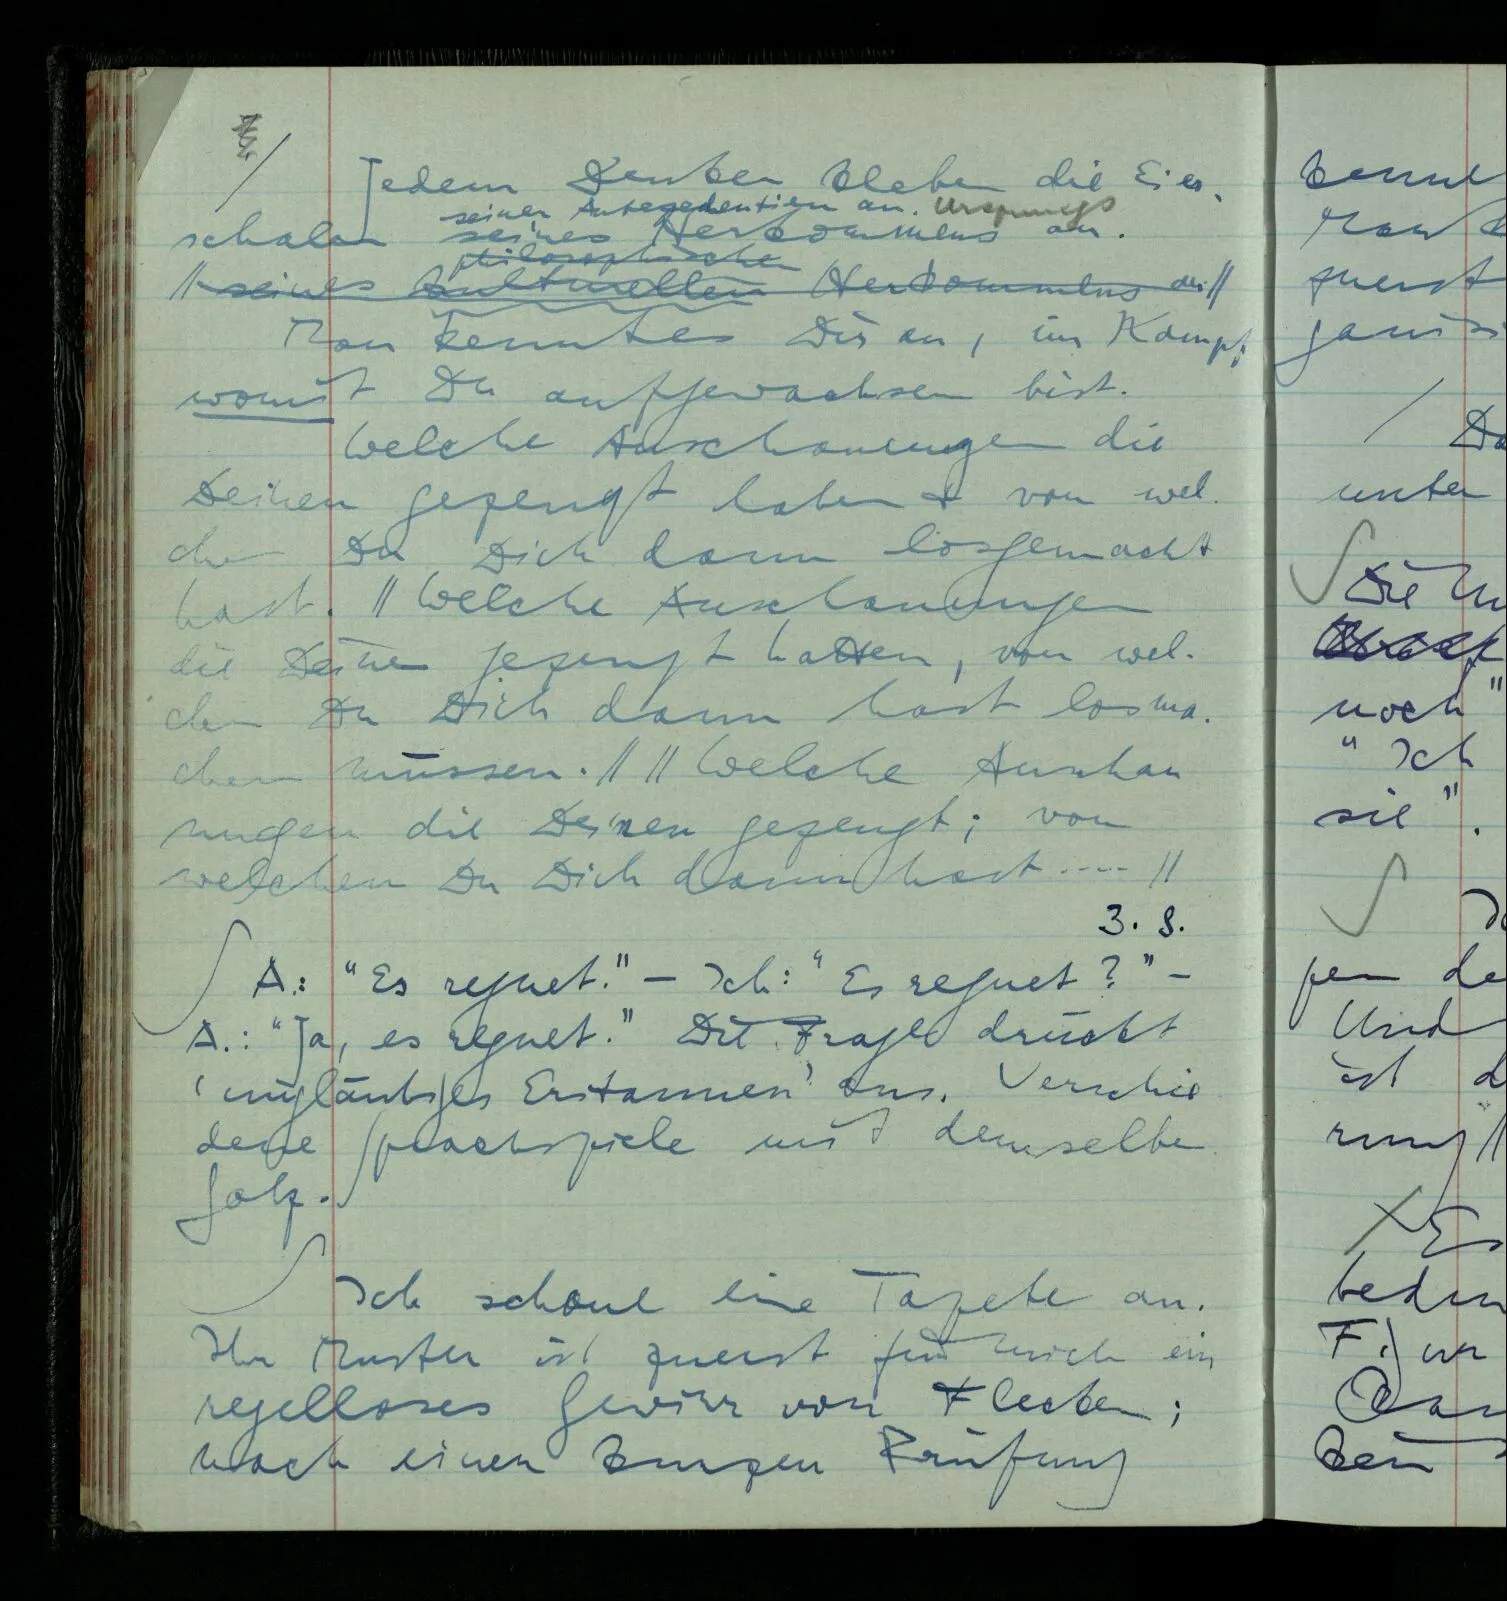 Jedem Denker kleben die Eier-
seiner Antezedentien an. Ursprungs
schalen seines Herkommens an.
philosophischen
// seines kulturellen Herkommens an //
Man kennt es Dir an, im Kampf
womit Du aufgewachsen bist.
Welche Anschauungen die
Deinen gezeugt haben & von wel-
chen Du Dich dann losgemacht
hast. // Welche Anschauungen
die Deinen gezeugt hatten, von wel-
chen Du Dich dann hast losma-
chen müssen. // // Welche Anschau
ungen die Deinen gezeugt; von
welchen Du Dich dann hast .... //
3. 8.
A.: "Es regnet." – Ich: "Es regnet?" –
A.: "Ja, es regnet." Die Frage drückt
'ungläubiges Erstaunen' aus. Verschie
dene Sprachspiele mit demselben
Satz.
Ich schaue eine Tapete an.
Ihr Muster ist zuerst für mich ein
regelloses Gewirr von Flecken;
nach einer kurzen Prüfung
zuerst
/ Da
unter
Die
noch "
" Ich
sie".
de
Und
ist d
rung //
Es
F.)